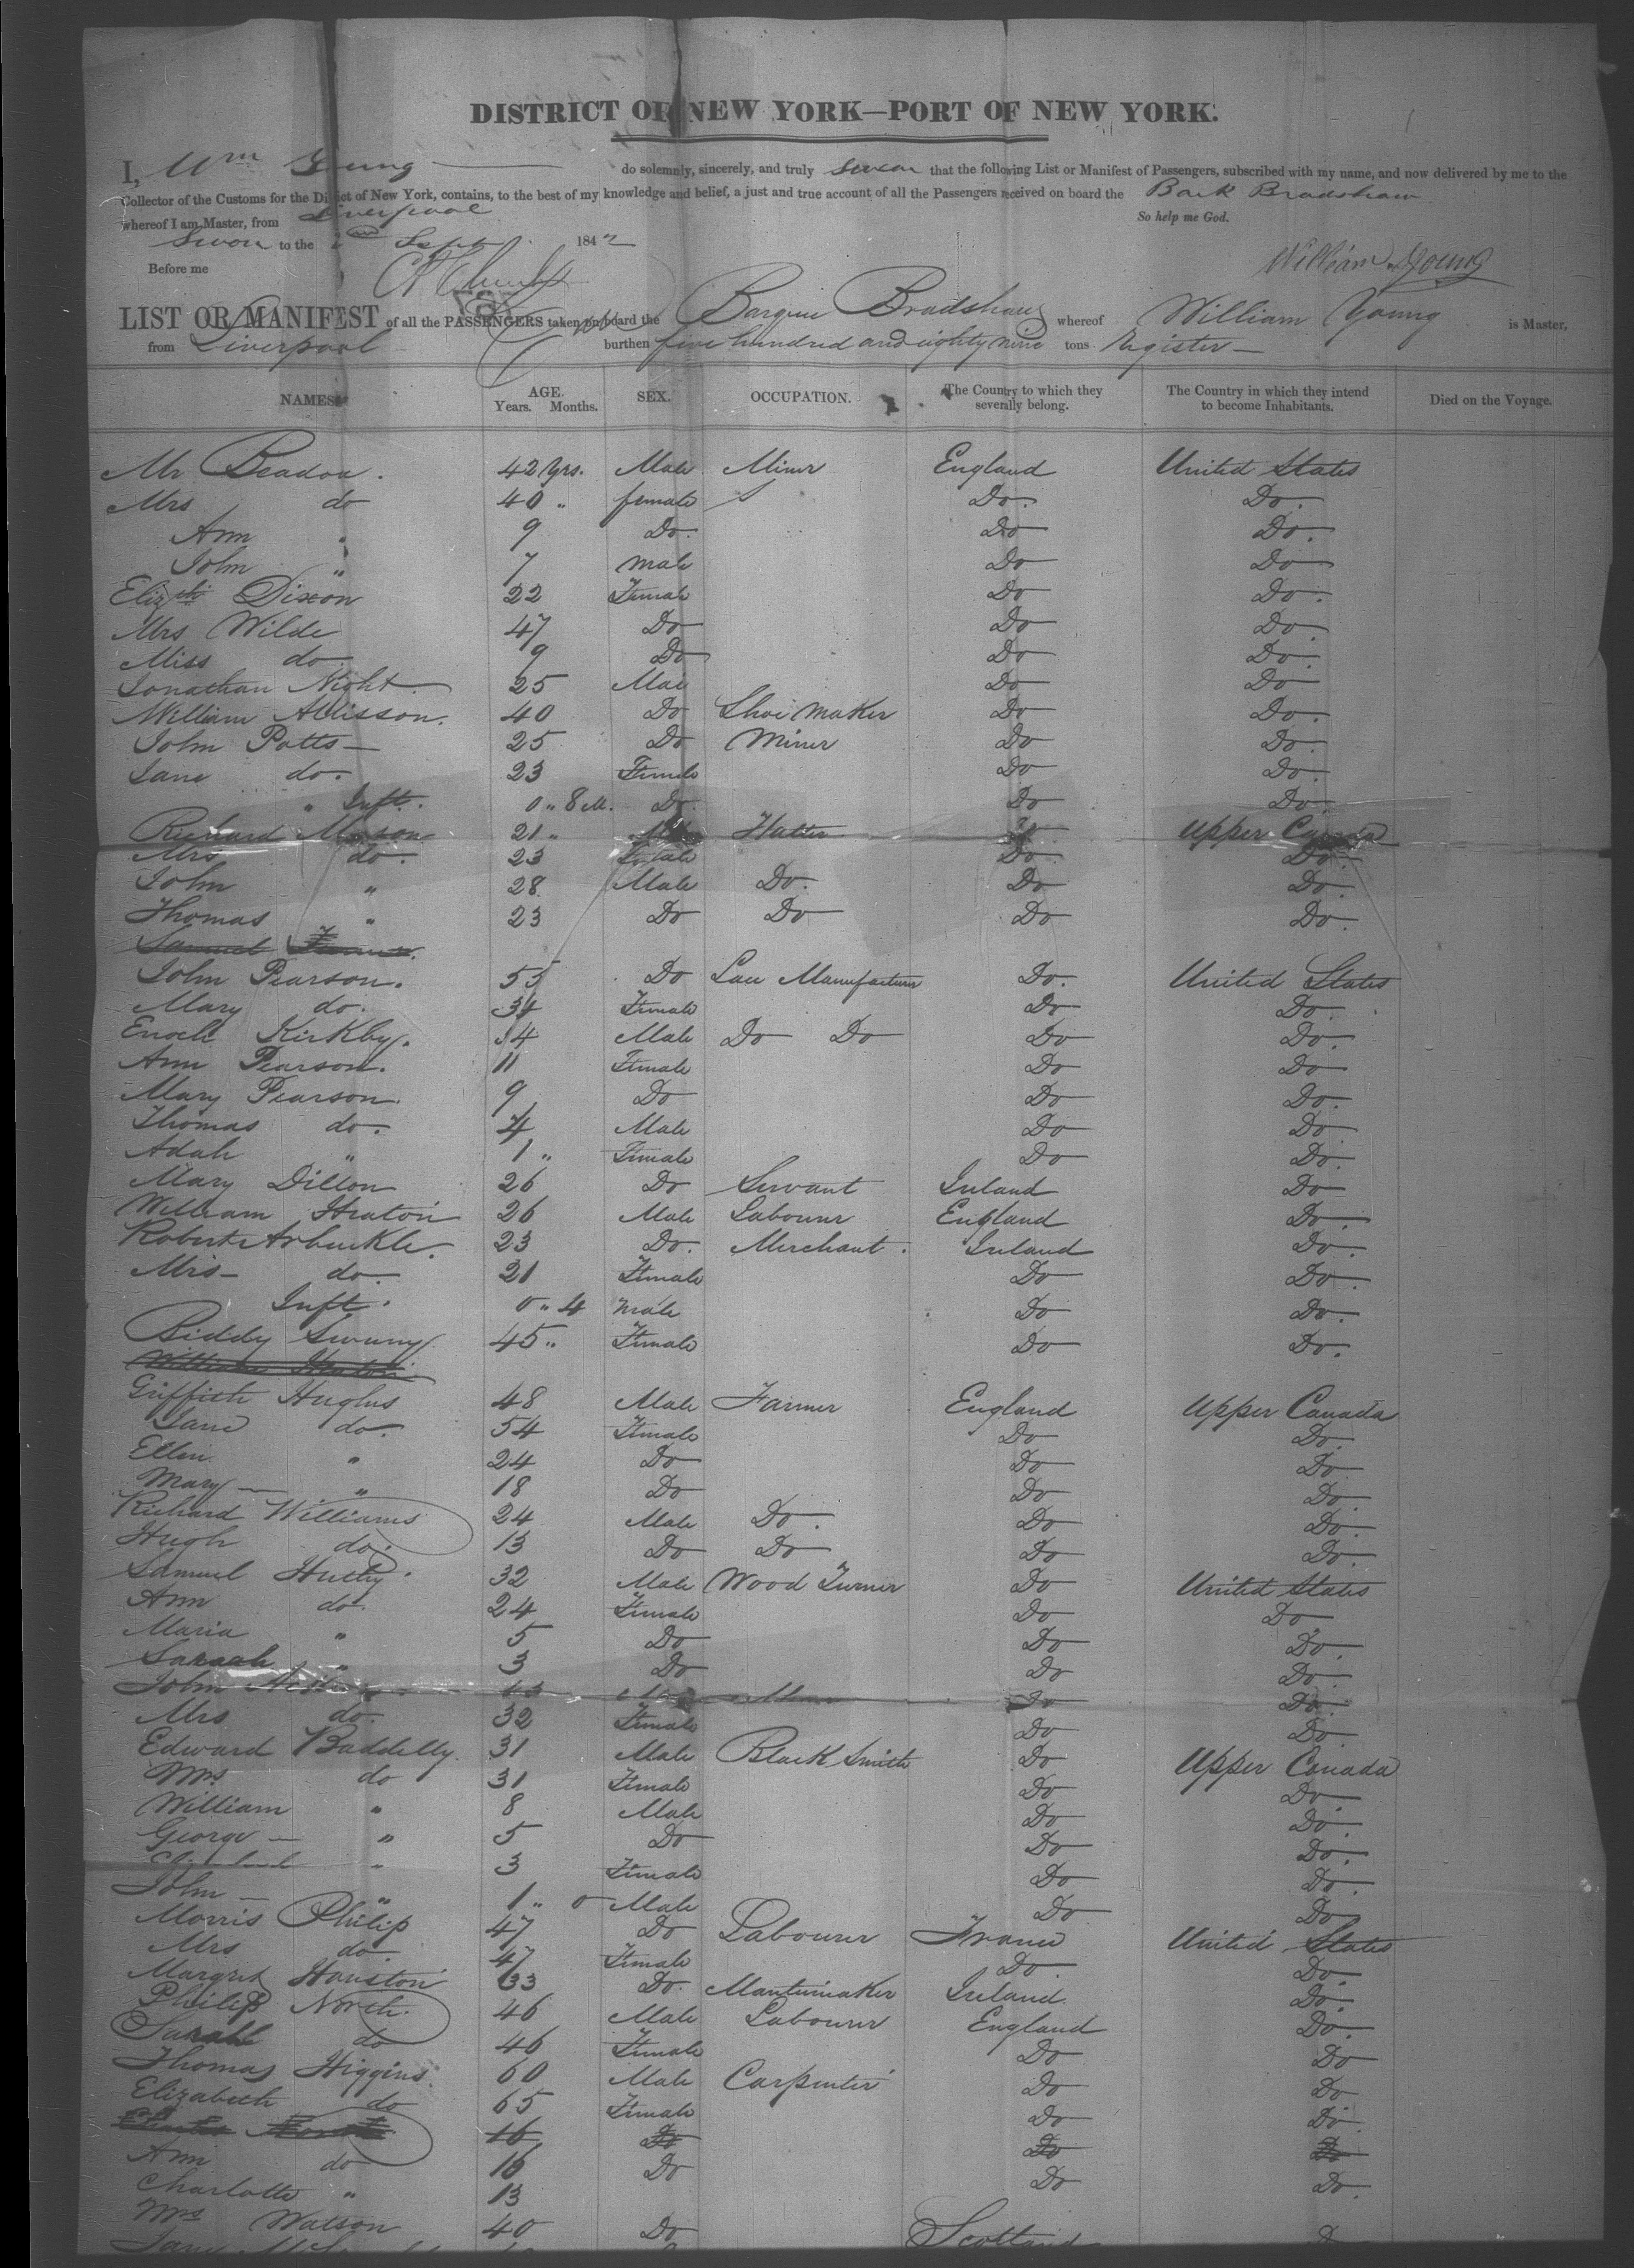 DISTRICT OF NEW YORK—PORT OF NEW YORK.
I, Wm Young do solemnly, sincerely, and truly swear that the following List or Manifest of Passengers, subscribed with my name, and now delivered by me to the
Collector of the Customs for the District of New York, contains, to the best of my knowledge and belief, a just and true account of all the Passengers received on board the Bark Bradshaw
whereof I am Master, from Liverpool So help me God.
Sworn to the 2nd Sept 184
Before me William Young
LIST OR MANIFEST of all the PASSENGERS taken on board the Barque Bradshaw whereof William Young is Master,
from Liverpool burthen five hundred and eighty nine tons Register
NAMES AGE. SEX. OCCUPATION. The Country to which they The Country in which they intend Died on the Voyage.
Years. Months. severally belong. to become Inhabitants.
Mr 42 Yrs. Male Miner England United States
Mrs do 40 " female Do. Do.
Ann " 9 Do. Do Do.
John " 7 male Do Do
Elizth Dixon 22 Female Do Do.
Mrs Wilde 47 Do Do Do.
Miss do 9 Do Do Do.
Jonathan Night 25 Male Do Do
William Allisson. 40 Do Shoe Maker Do Do.
John Potts 25 Do Miner Do Do.
Jane do. 23 Female Do Do.
" Inft. 0 " 8 M. Do Do Do
Richard Mason 21 " Hatter Upper Canada
Mrs do. 23 Female Do Do.
John " 28 Male Do. Do Do.
Thomas " 23 Do Do Do Do.
Samuel
John Pearson. 55 Do Lace Manufacturer Do. United States
Mary do. 34 Female Do Do.
Enoch Kirkby. Male Do Do Do Do.
Ann Pearson. 11 Female Do Do
Mary Pearson. 9 Do Do Do.
Thomas do. 4 Male Do Do
Adah " 1 " Female Do Do.
Mary Dillon 26 Do Servant Ireland Do
William Heaton 26 Male Labourer England Do.
Robert Arbuckle. 23 Do. Merchant. Ireland Do.
Mrs do. 21 Female Do Do.
Inft. 0 " 4 male Do Do.
Biddy Sweeny 45 " Female Do Do.
William Heaton
Griffith Hughes 48 Male Farmer England Upper Canada
Jane do. 54 Female Do Do.
Ellen " 24 Do Do Do.
Mary " 18 Do Do Do.
Richard Williams 24 Male Do. Do Do.
Hugh do. 13 Do Do Do Do.
Samuel 32 Male Wood Turner Do United States
Ann do. 24 Female Do Do
Maria " 5 Do Do Do.
Sarah " 3 Do Do Do.
John Do Do.
Mrs do. 32 Female Do Do.
Edward Baddelly. 31 Male Black Smith Do Upper Canada
Mrs do 31 Female Do Do
William " 8 Male Do Do.
George " 5 Do Do Do.
" 3 Female Do Do.
John " 1 " 0 Male Do Do
Morris Philip 47 Do Labourer France United States
Mrs do 47 Female Do. Do.
Margret Houston 33 Do. Mantumaker Ireland Do.
Philip North. 46 Male Labourer England Do.
Sarah do 46 Female Do Do
Thomas Higgins 60 Male Carpenter Do Do
Elizabeth do 65 Female Do Do
Charles North 16 Do Do Do
Ann do 16 Do Do Do.
Charlotte " 13
Mrs Watson 40 Do Scotland
Jane